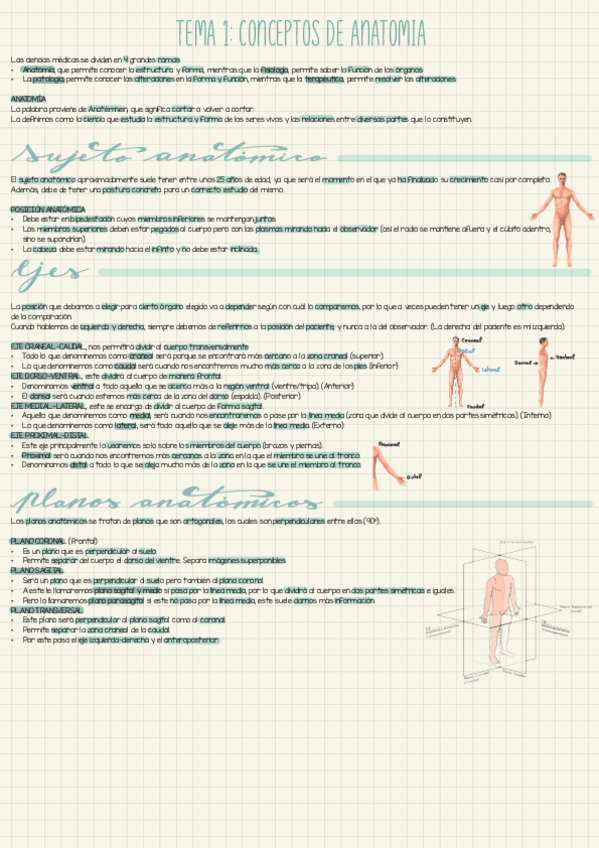 TEMA 1: CONCEPTOS DE ANATOMIA
Las ciencias médicas se dividen en 4 grandes ramas
• Anatomía, que permite conocer la estructura y forma, mientras que la fisiología, permite saber la función de los órganos
• La patología, permite conocer las alteraciones en la forma y función, mientras que la terapéutica, permite resolver las alteraciones
ANATOMÍA
La palabra proviene de Anatémnein, que significa cortar o volver a cortar.
La definimos como la ciencia que estudia la estructura y forma de los seres vivos y las relaciones entre diversas partes que lo constituyen.
Sujeto anatómico
El sujeto anatómico aproximadamente suele tener entre unos 25 años de edad, ya que será el momento en el que ya ha finalizado su crecimiento casi por completo.
Además, debe de tener una postura concreta para un correcto estudio del mismo.
POSICIÓN ANATÓMICA
• Debe estar en bipedestación cuyos miembros inferiores se mantengan juntos
• Los miembros superiores deben estar pegados al cuerpo pero con las plasmas mirando hacia el observador (así el radio se mantiene afuera y el cúbito adentro,
sino se supondrían)
• La cabeza debe estar mirando hacia el infinito y no debe estar inclinada
Ejes
La posición que debamos a elegir para cierto órgano elegido va a depender según con cuál la comparemos, por lo que a veces pueden tener un eje y luego otro dependiendo
de la comparación
Cuando hablemos de izquierda y derecha, siempre debemos de referirnos a la posición del paciente, y nunca a la del observador (La derecha del paciente es mi izquierda)
EJE CRANEAL-CAUDAL, nos permitirá dividir al cuerpo transversalmente
• Todo lo que denominemos como craneal será porque se encontrará más cercano a la zona craneal (superior)
• Lo que denominemos como caudal será cuando nos encontremos mucho más cerca a la zona de los pies (inferior)
EJE DORSO-VENTRAL, este dividirá al cuerpo de manera frontal
• Denominamos ventral a todo aquello que se acerca más a la región ventral (vientre/tripa) (Anterior)
• El dorsal será cuando estemos más cerca de la zona del dorso (espalda). (Posterior)
EJE MEDIAL-LATERAL, este se encarga de dividir al cuerpo de forma sagital
• Aquello que denominemos como medial, será cuando nos encontraremos o pase por la línea media (zona que divide al cuerpo en dos partes simétricas) (Interno)
• Lo que denominemos como lateral, será todo aquello que se aleje más de la línea media (Externo)
EJE PROXIMAL-DISTAL
• Este eje principalmente lo usaremos solo sobre los miembros del cuerpo (brazos y piernas).
• Proximal será cuando nos encontremos más cercanos a la zona en la que el miembro se une al tronco
• Denominamos distal a todo lo que se aleja mucho más de la zona en la que se une el miembro al tronco
Craneal
Lateral
Caudal
Dorsal
Ventral
Proximal
Distal
Planos anatómicos
Los planos anatómicos se tratan de planos que son ortogonales, los cuales son perpendiculares entre ellos (90º).
PLANO CORONAL (frontal)
• Es un plano que es perpendicular al suelo
• Permite separar del cuerpo el dorso del vientre. Separa imágenes superponibles
PLANO SAGITAL
• Será un plano que es perpendicular al suelo pero también al plano coronal
• A este le llamaremos plano sagital y medio si pasa por la línea media, por lo que dividirá al cuerpo en dos partes simétricas e iguales.
• Pero lo llamaremos plano parasagital si este no pasa por la línea media, este suele darnos más información
PLANO TRANSVERSAL
• Este plano será perpendicular al plano sagital como al coronal
• Permite separar la zona craneal de la caudal
• Por este pasa el eje izquierda-derecha y el anteroposterior